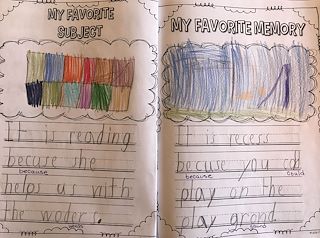 MY FAVORITE
SUBJECT
It is reading
becuse she
because
helps us with
the woders
words
MY FAVORITE MEMORY
It is recess
becuse you cod
because could
play on the
play grond
ground